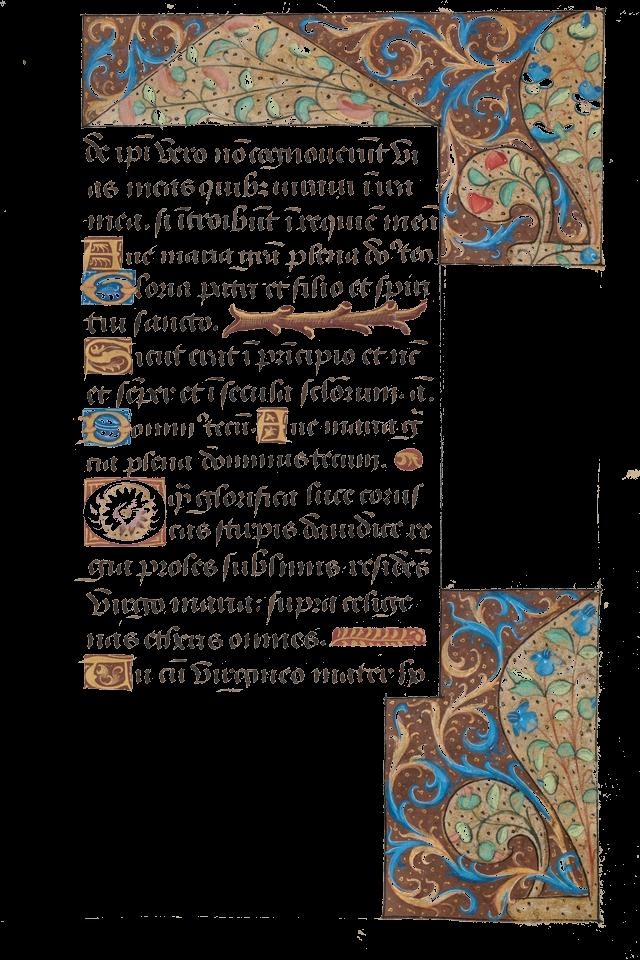 de ipī vero nō cognoverūt vi
as meas quibꝫ iuravi ī ira
mea. si ītroibūt ī requiē meā
Ave maria grā plena dō tecū
Gloria patri et filio et spiri
tui sancto.
Sicut erat ī prīcipio et nūc
et sēper et ī secula sclorum. a.
Domin' tecū. Ave maria gr̄
cia plena dominus tecum.
O q̄ glorifica luce corus
cas stirpis davidice re
gia proles sublimis residēs
Virgo maria: supra celige
nas etheris omnes.
Tu cū virgineo mater ho